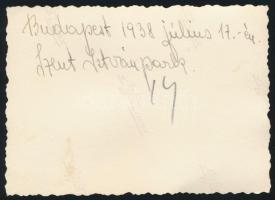 Budapest 1938 július 17.-én.
Szent István park.